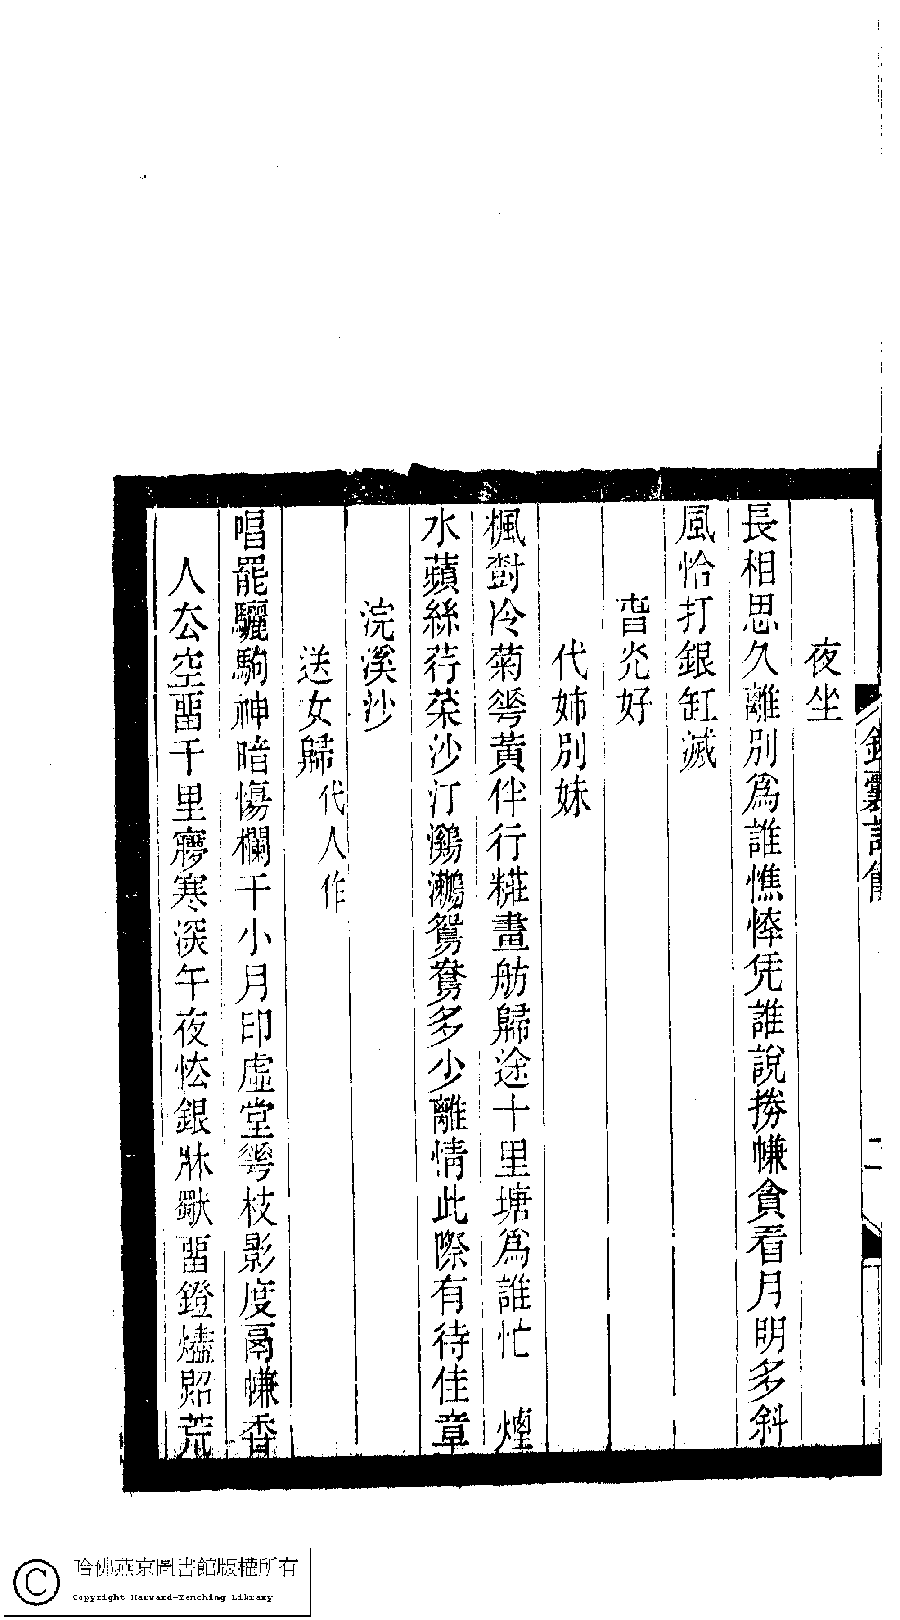 錦囊詩餘 二
夜坐
長相思久離別爲誰憔悴凭誰說捲㡘貪看月明多斜
風恰打銀缸滅
旾灮好
代姉別妹
楓對冷菊華黃伴行糚畫舫歸途十里塘爲誰忙　煙
水蘋絲荇菜沙汀鸂鶒鴛鴦多少離情此際有待佳章
浣溪沙
送女歸代人作
唱罷驪駒神暗傷欄干小月印虛堂華枝影度鬲㡘香
人厺空畱千里夢寒深午夜怯銀牀獸畱鐙燼照荒
哈佛燕京圖書館版權所有
Copyright Harvard-Yenching Library